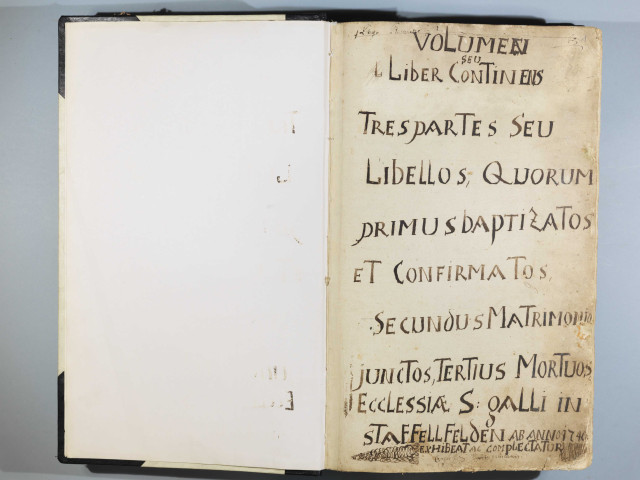 VOLUMEN
SEU
LIBER CONTINENS
TRES PARTES SEU
LIBELLOS, QUORUM
PRIMUS BAPTIZATOS
ET CONFIRMATOS,
SECUNDUS MATRIMONIO
JUNCTOS, TERTIUS MORTUOS
ECCLESSIÆ S: GALLI IN
STAFFELLFELDEN AB ANNO
EXHIBEAT AC COMPLECTATUR